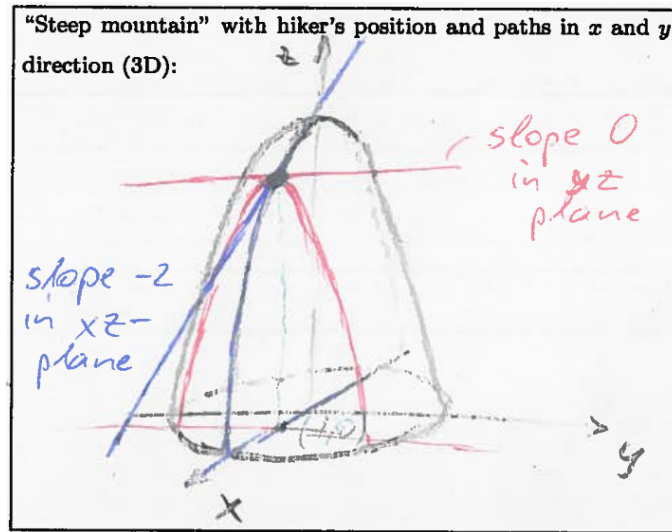 “Steep mountain” with hiker’s position and paths in x and y
direction (3D):
z
slope 0
in yz
plane
slope -2
in xz-
plane
(1,0)
y
x